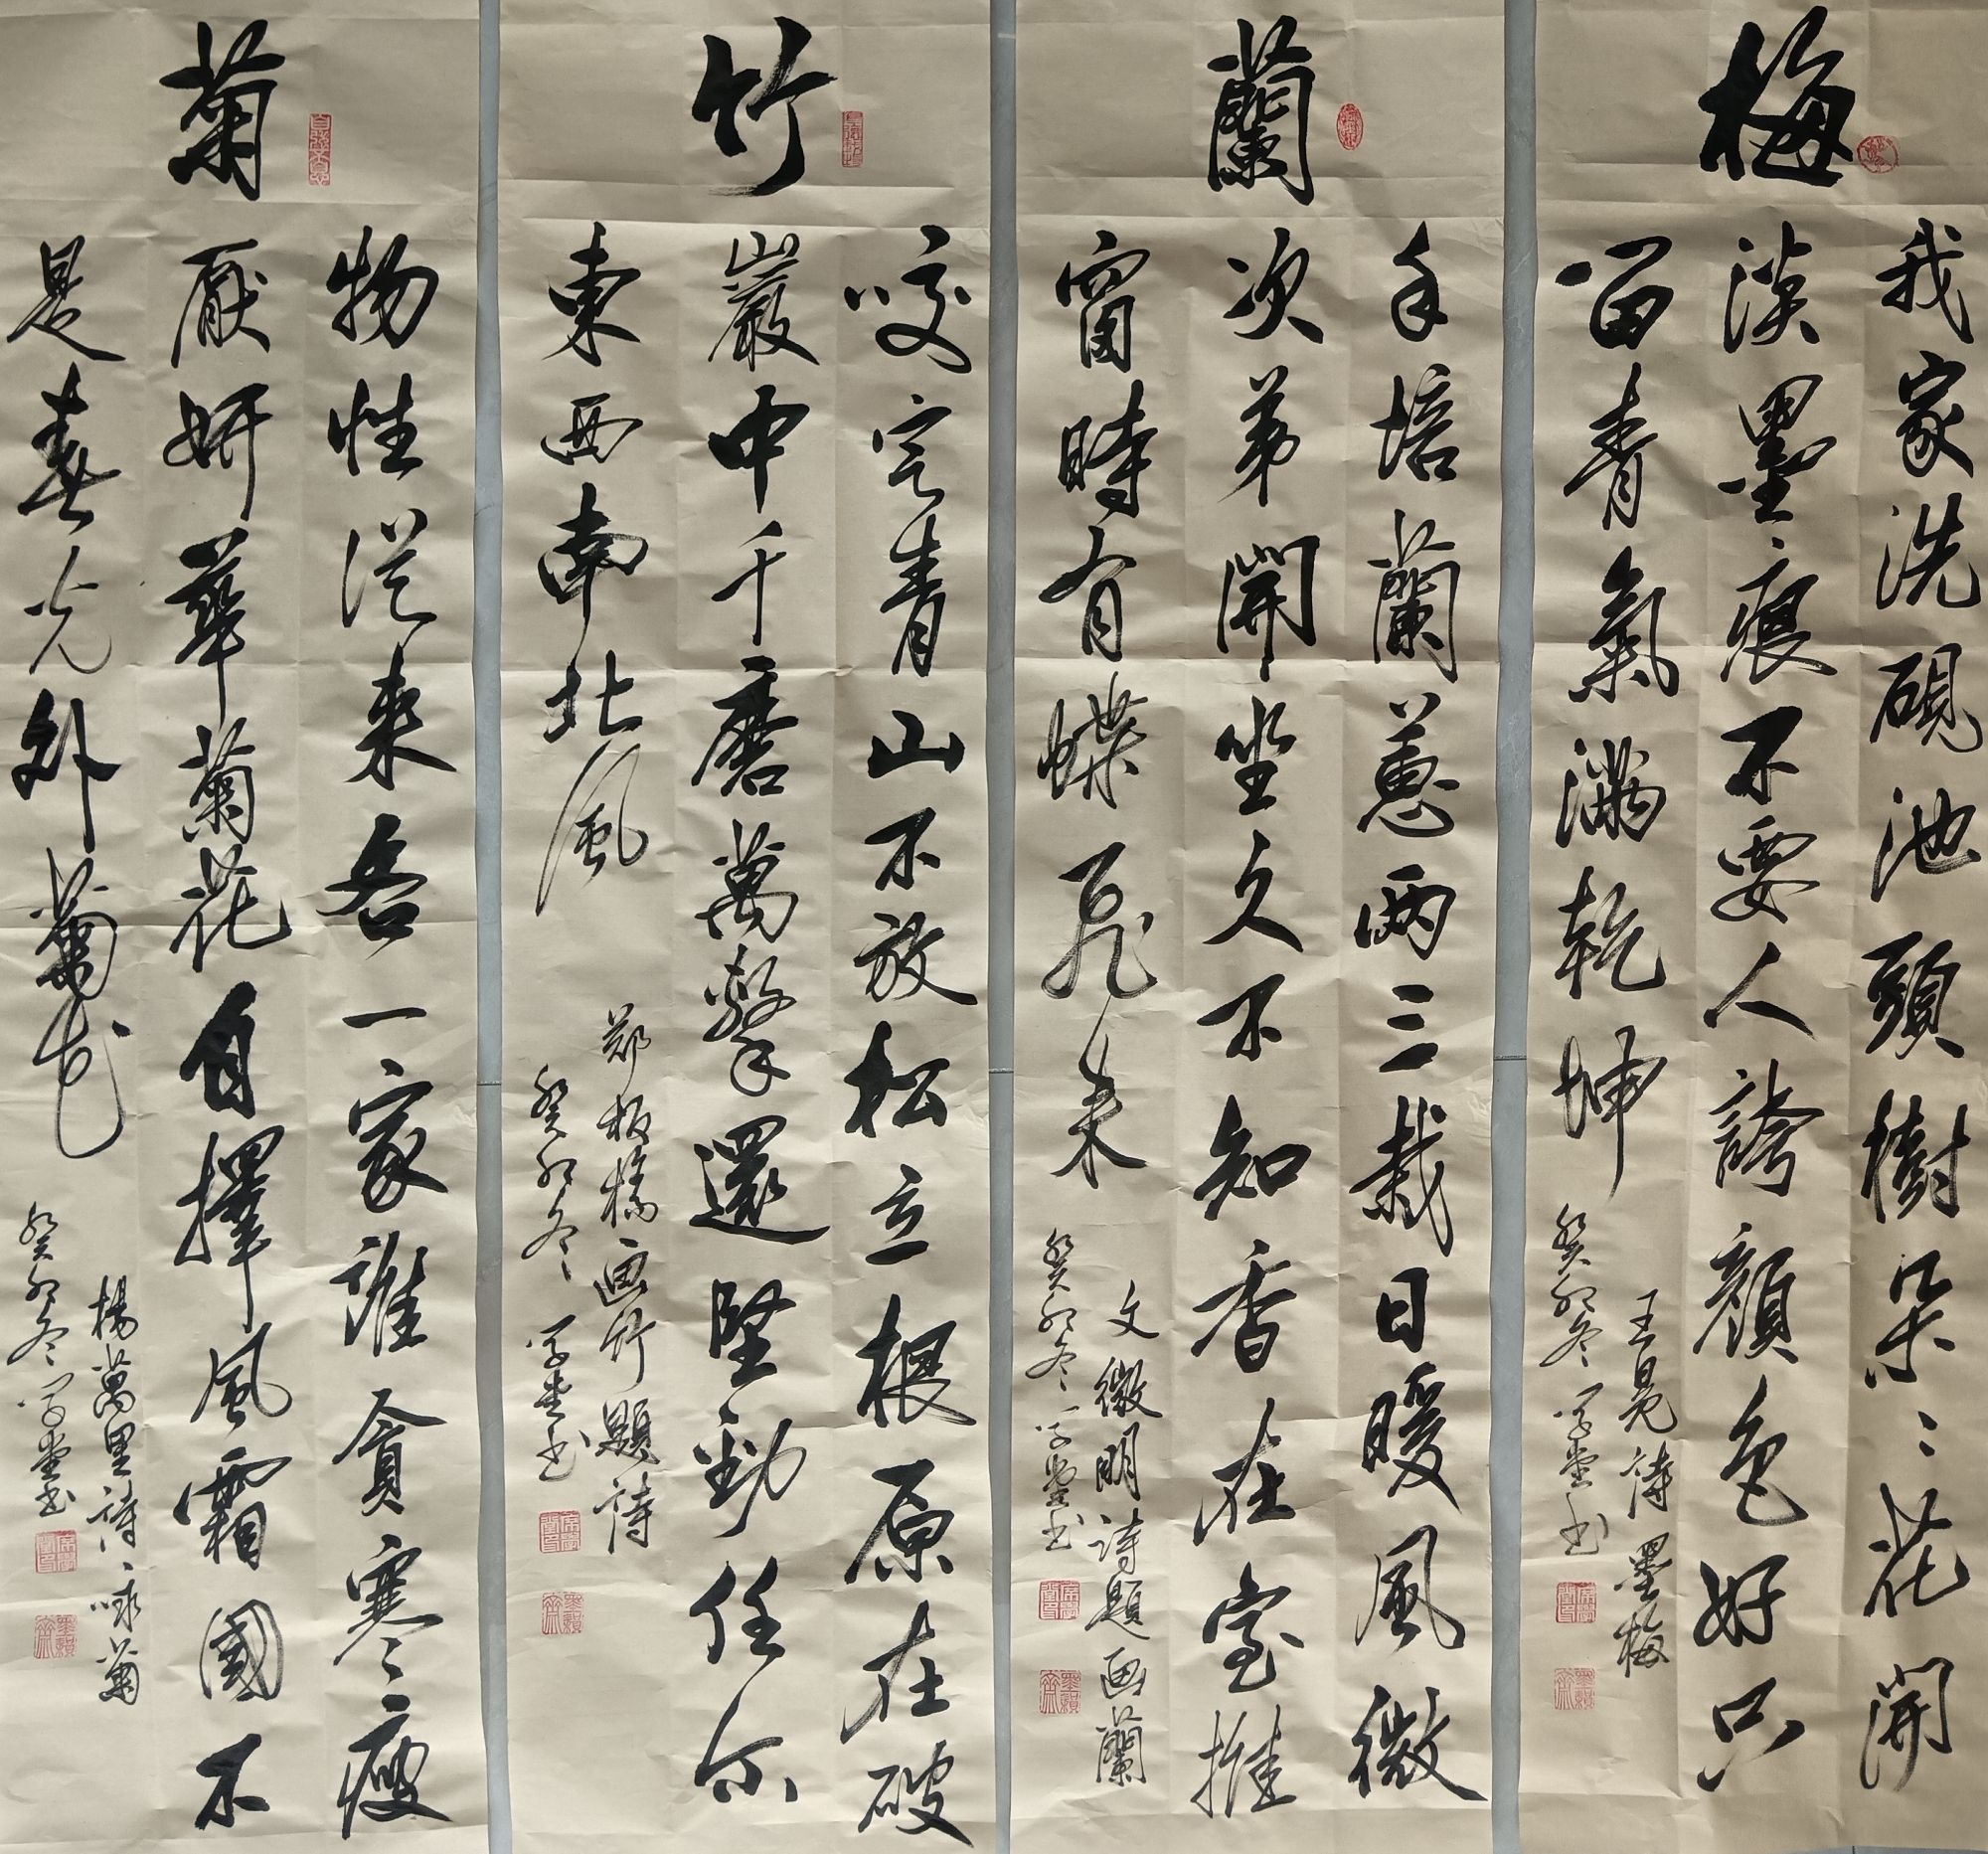 梅
我家洗硯池頭樹朵々花開
淡墨痕不要人誇顏色好只
留青氣滿乾坤
王冕詩墨梅
癸卯冬学堂书
蘭
手培蘭蕙兩三栽日暖風微
次第開坐久不知香在室推
窗時有蝶飛来
文徵明詩題画蘭
癸卯冬学堂书
竹
咬定青山不放松立根原在破
巖中千磨萬擊還堅勁任尔
東西南北風
郑板橋画竹題詩
癸卯冬学堂书
菊
物性從来各一家誰貪寒瘦
厭妍華菊花自擇風霜國不
是春光外菊花
楊萬里詩咏菊
癸卯冬学堂书